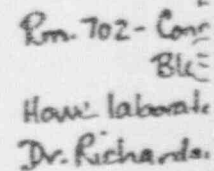 Rm. 702 - Con
Bl
Have laborat
Dr. Richards